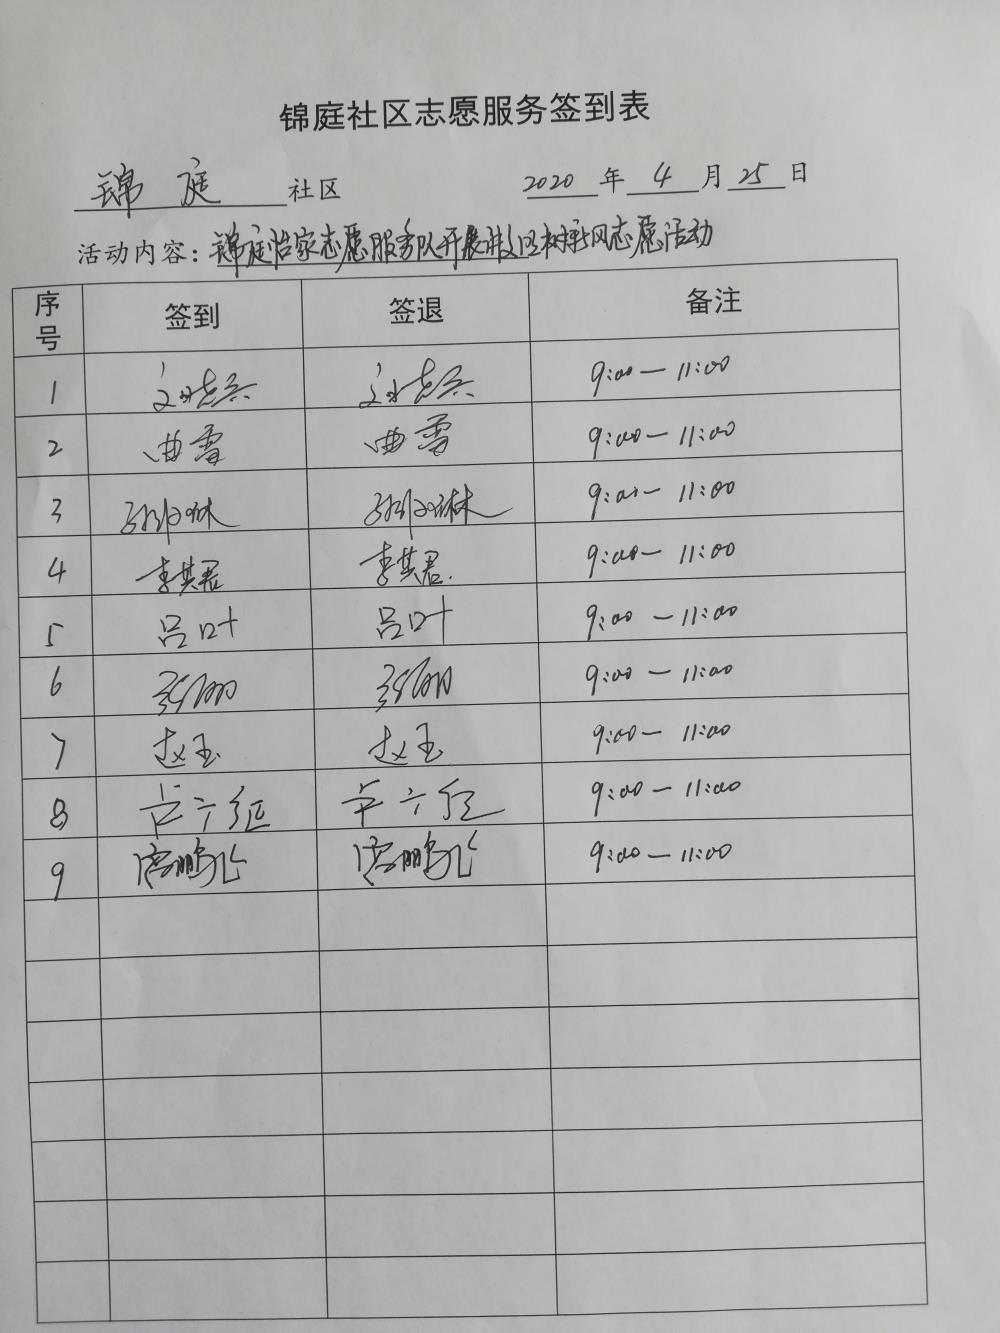 锦庭社区志愿服务签到表
锦庭 社区 2020 年 4 月 25 日
活动内容：锦庭怡家志愿服务队开展讲文明树新风志愿活动
序号 签到 签退 备注
1 9:00—11:00
2 曲雪 曲雪 9:00—11:00
3 9:00—11:00
4 李其君 李其君 9:00—11:00
5 吕叶 吕叶 9:00—11:00
6 9:00—11:00
7 赵玉 赵玉 9:00—11:00
8 9:00—11:00
9 唐鹏飞 唐鹏飞 9:00—11:00